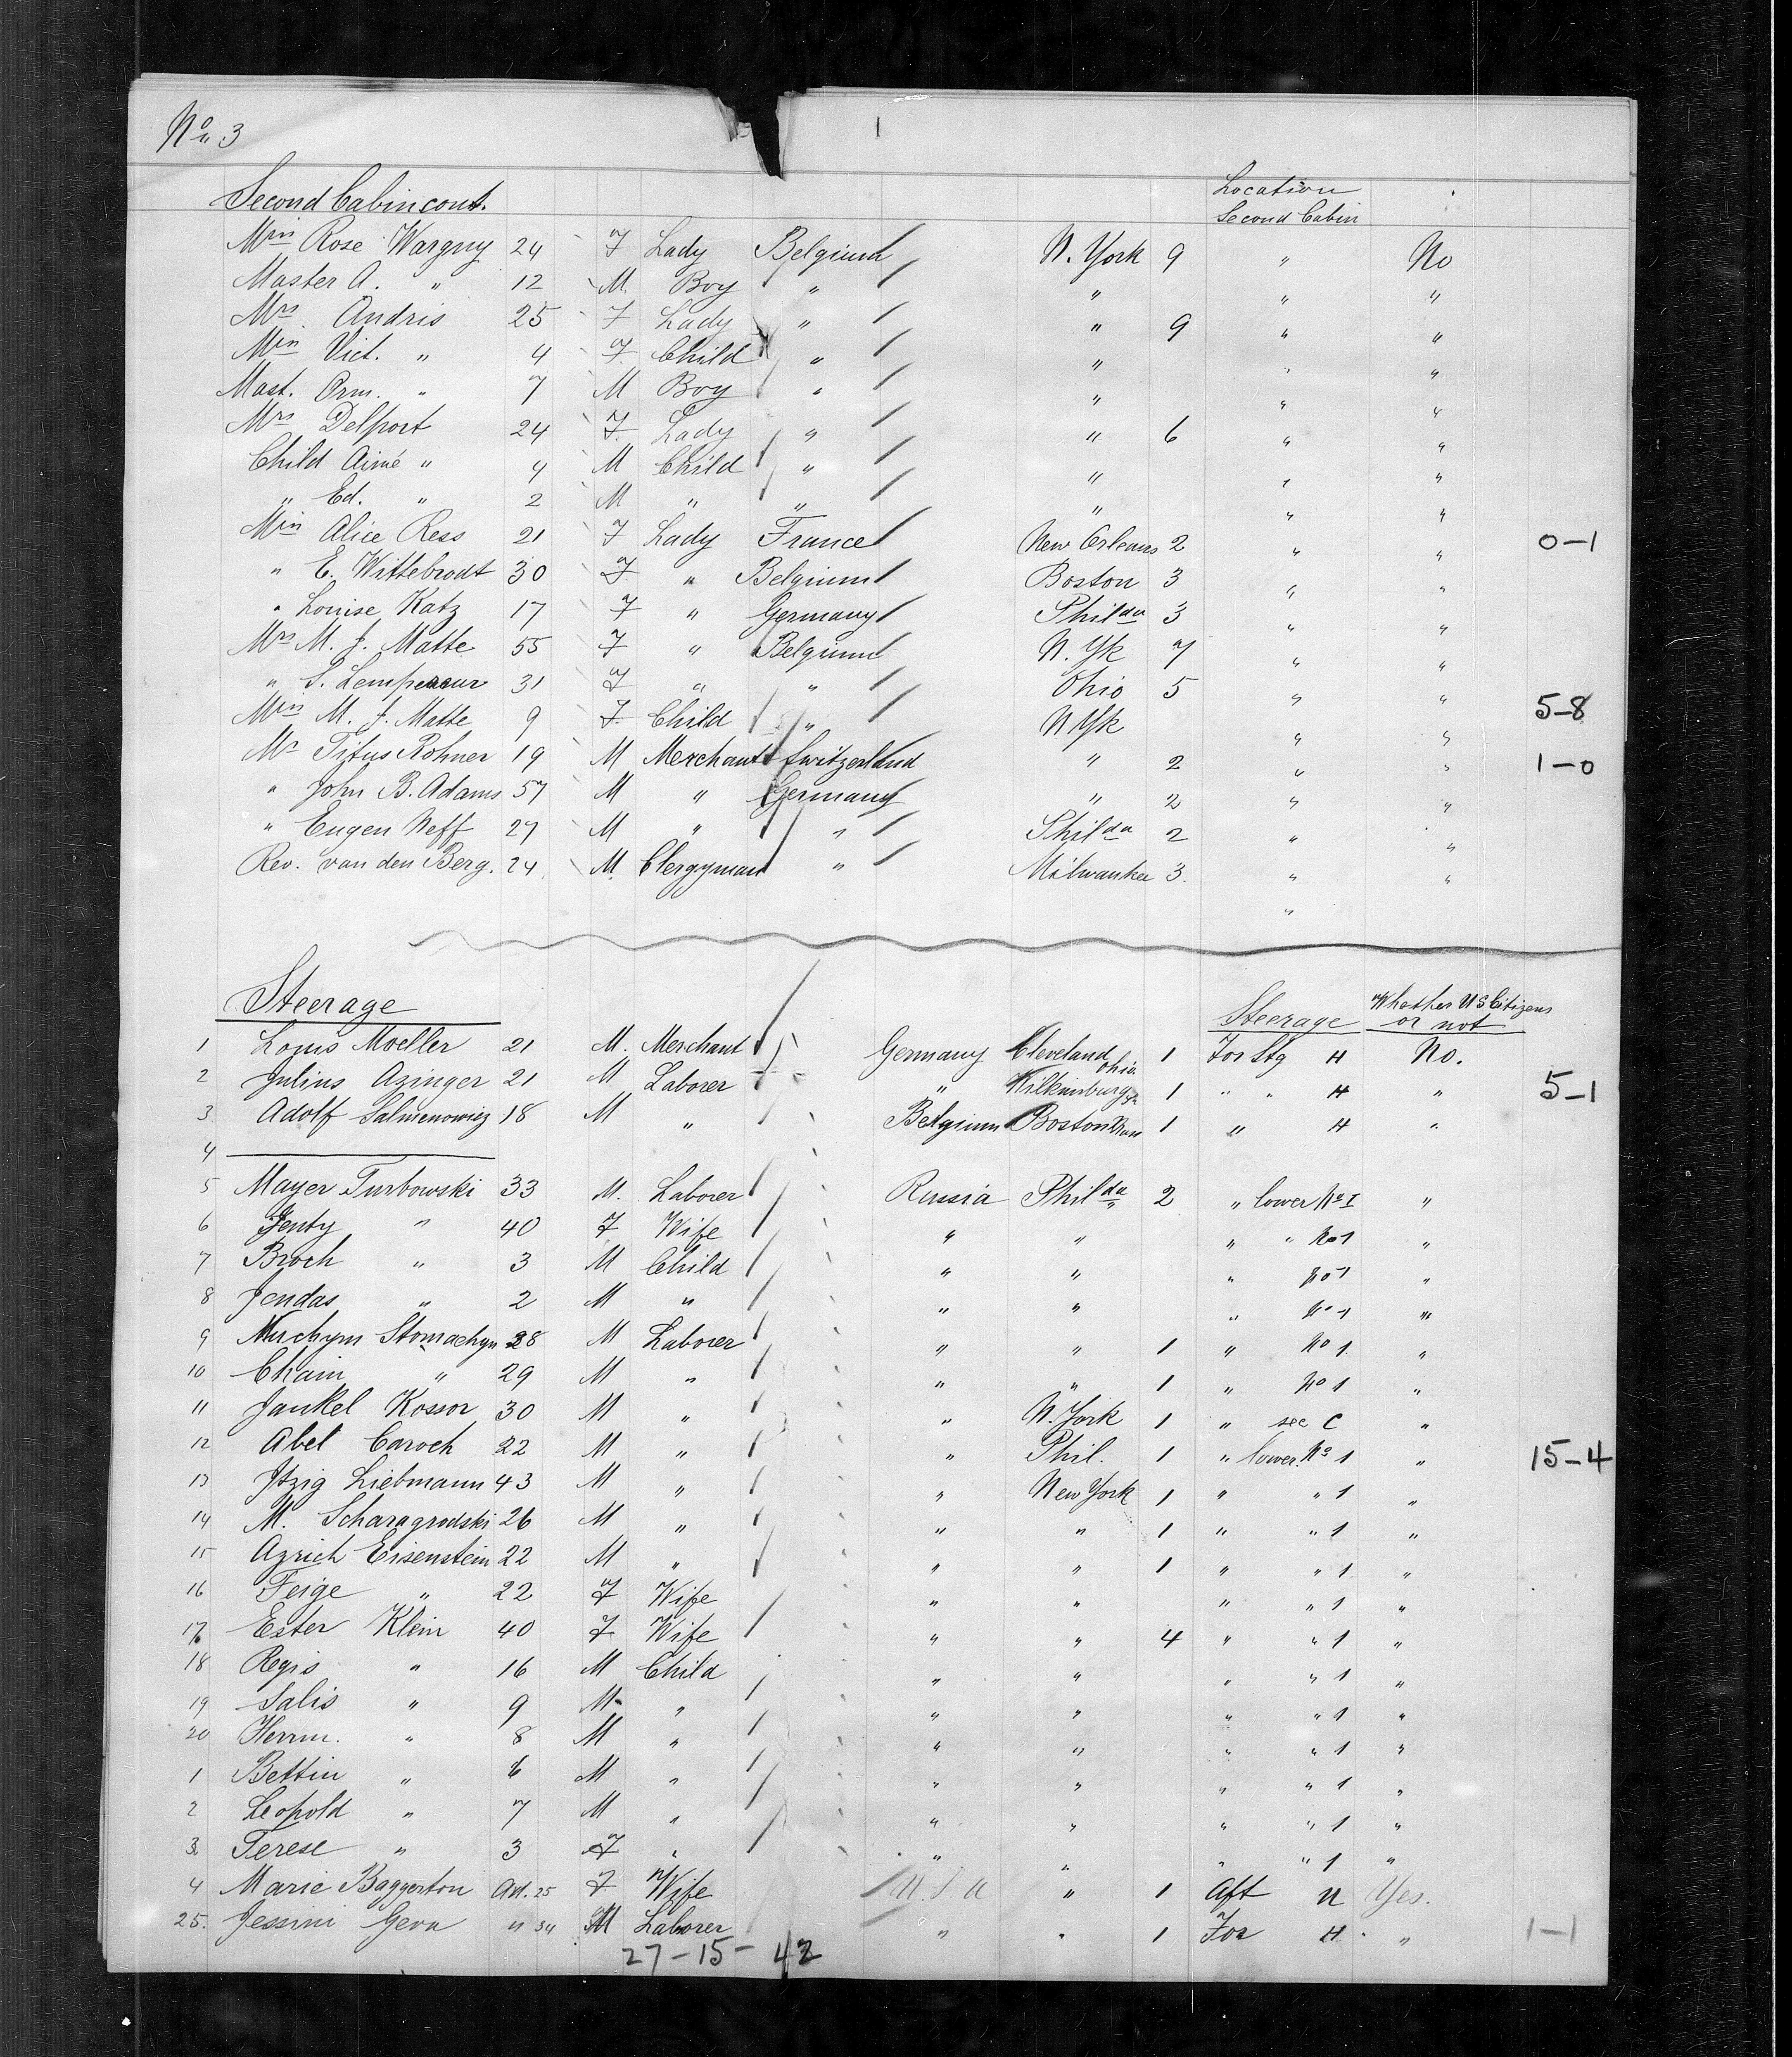 No 3
1
Second Cabin cont. Location Second Cabin
Miss Rose Wargny 24 F Lady Belgium N. York 9 " No
Master A. " 12 M. Boy " " " "
Mrs Andris 25 F Lady " " 9 " "
Miss Vict. " 4 F. Child " " " "
Mast. Orm. " 7 M Boy " " " "
Mrs Delport 24 F. Lady " " 6 " "
Child Aimé " 4 M Child " " " "
" Ed. " 2 M " " " " "
Miss Alice Ress 21 F Lady France New Orleans 2 " " 0-1
" E. Wittebrodt 30 F " Belgium Boston 3 " "
" Louise Katz 17 F " Germany Philda 3 " "
Mrs M. J. Matte 55 F " Belgium N. Yk 7 " "
" S. Lempereur 31 F " " Ohio 5 " "
Miss M. J. Matte 9 F. Child " N Yk " " 5-8
Mr Titus Rohner 19 M Merchant Switzerland " 2 " " 1-0
" John B. Adams 57 M " Germany " 2 " "
" Eugen Neff 27 M " " Philda 2 " "
Rev. van den Berg. 24 M. Clergyman " Milwaukee 3. " "
"
Steerage Steerage Whether U S Citizens or not
1 Louis Moeller 21 M. Merchant Germany Cleveland Ohio 1 For Stg H No.
2 Julius Azinger 21 M Laborer " Wilkinsburg 1 " " H " 5-1
3 Adolf Salmenowiez 18 M " Belgium Boston 1 " H "
4
5 Mayer Turbowski 33 M. Laborer Russia Philda 2 " lower No I "
6 Jenty " 40 F Wife " " " " No 1 "
7 Broch " 3 M Child " " " No 1 "
8 Jendas " 2 M " " " " No 1 "
9 Nuchym Stomachyn 28 M Laborer " " 1 " No 1 "
10 Chain " 29 M " " " 1 " No 1 "
11 Jankel Kossor 30 M " " N. York 1 " sec C "
12 Abel Caroch 22 M " " Phil. 1 " lower No 1 " 15-4
13 Itzig Liebmann 43 M " " New York 1 " " 1 "
14 M. Scharagrodski 26 M " " " 1 " " 1 "
15 Azrich Eisenstein 22 M " " " 1 " " 1 "
16 Feige " 22 F Wife " " " " 1 "
17 Ester Klein 40 F Wife " " 4 " " 1 "
18 Regis " 16 M Child " " " " 1 "
19 Salis " 9 M " " " " " 1 "
20 Herrm. " 8 M " " " " " 1 "
1 Bettin " 6 M " " " " " 1 "
2 Leopold " 7 M " " " " " 1 "
3. Terese " 3 F " " " " " 1 "
4 Marie Baggerton Ad. 25 F. Wife U. S. A " 1 Aft U Yes.
25. Jessini Geva " 34 M Laborer " " 1 For H " 1-1
27-15-42